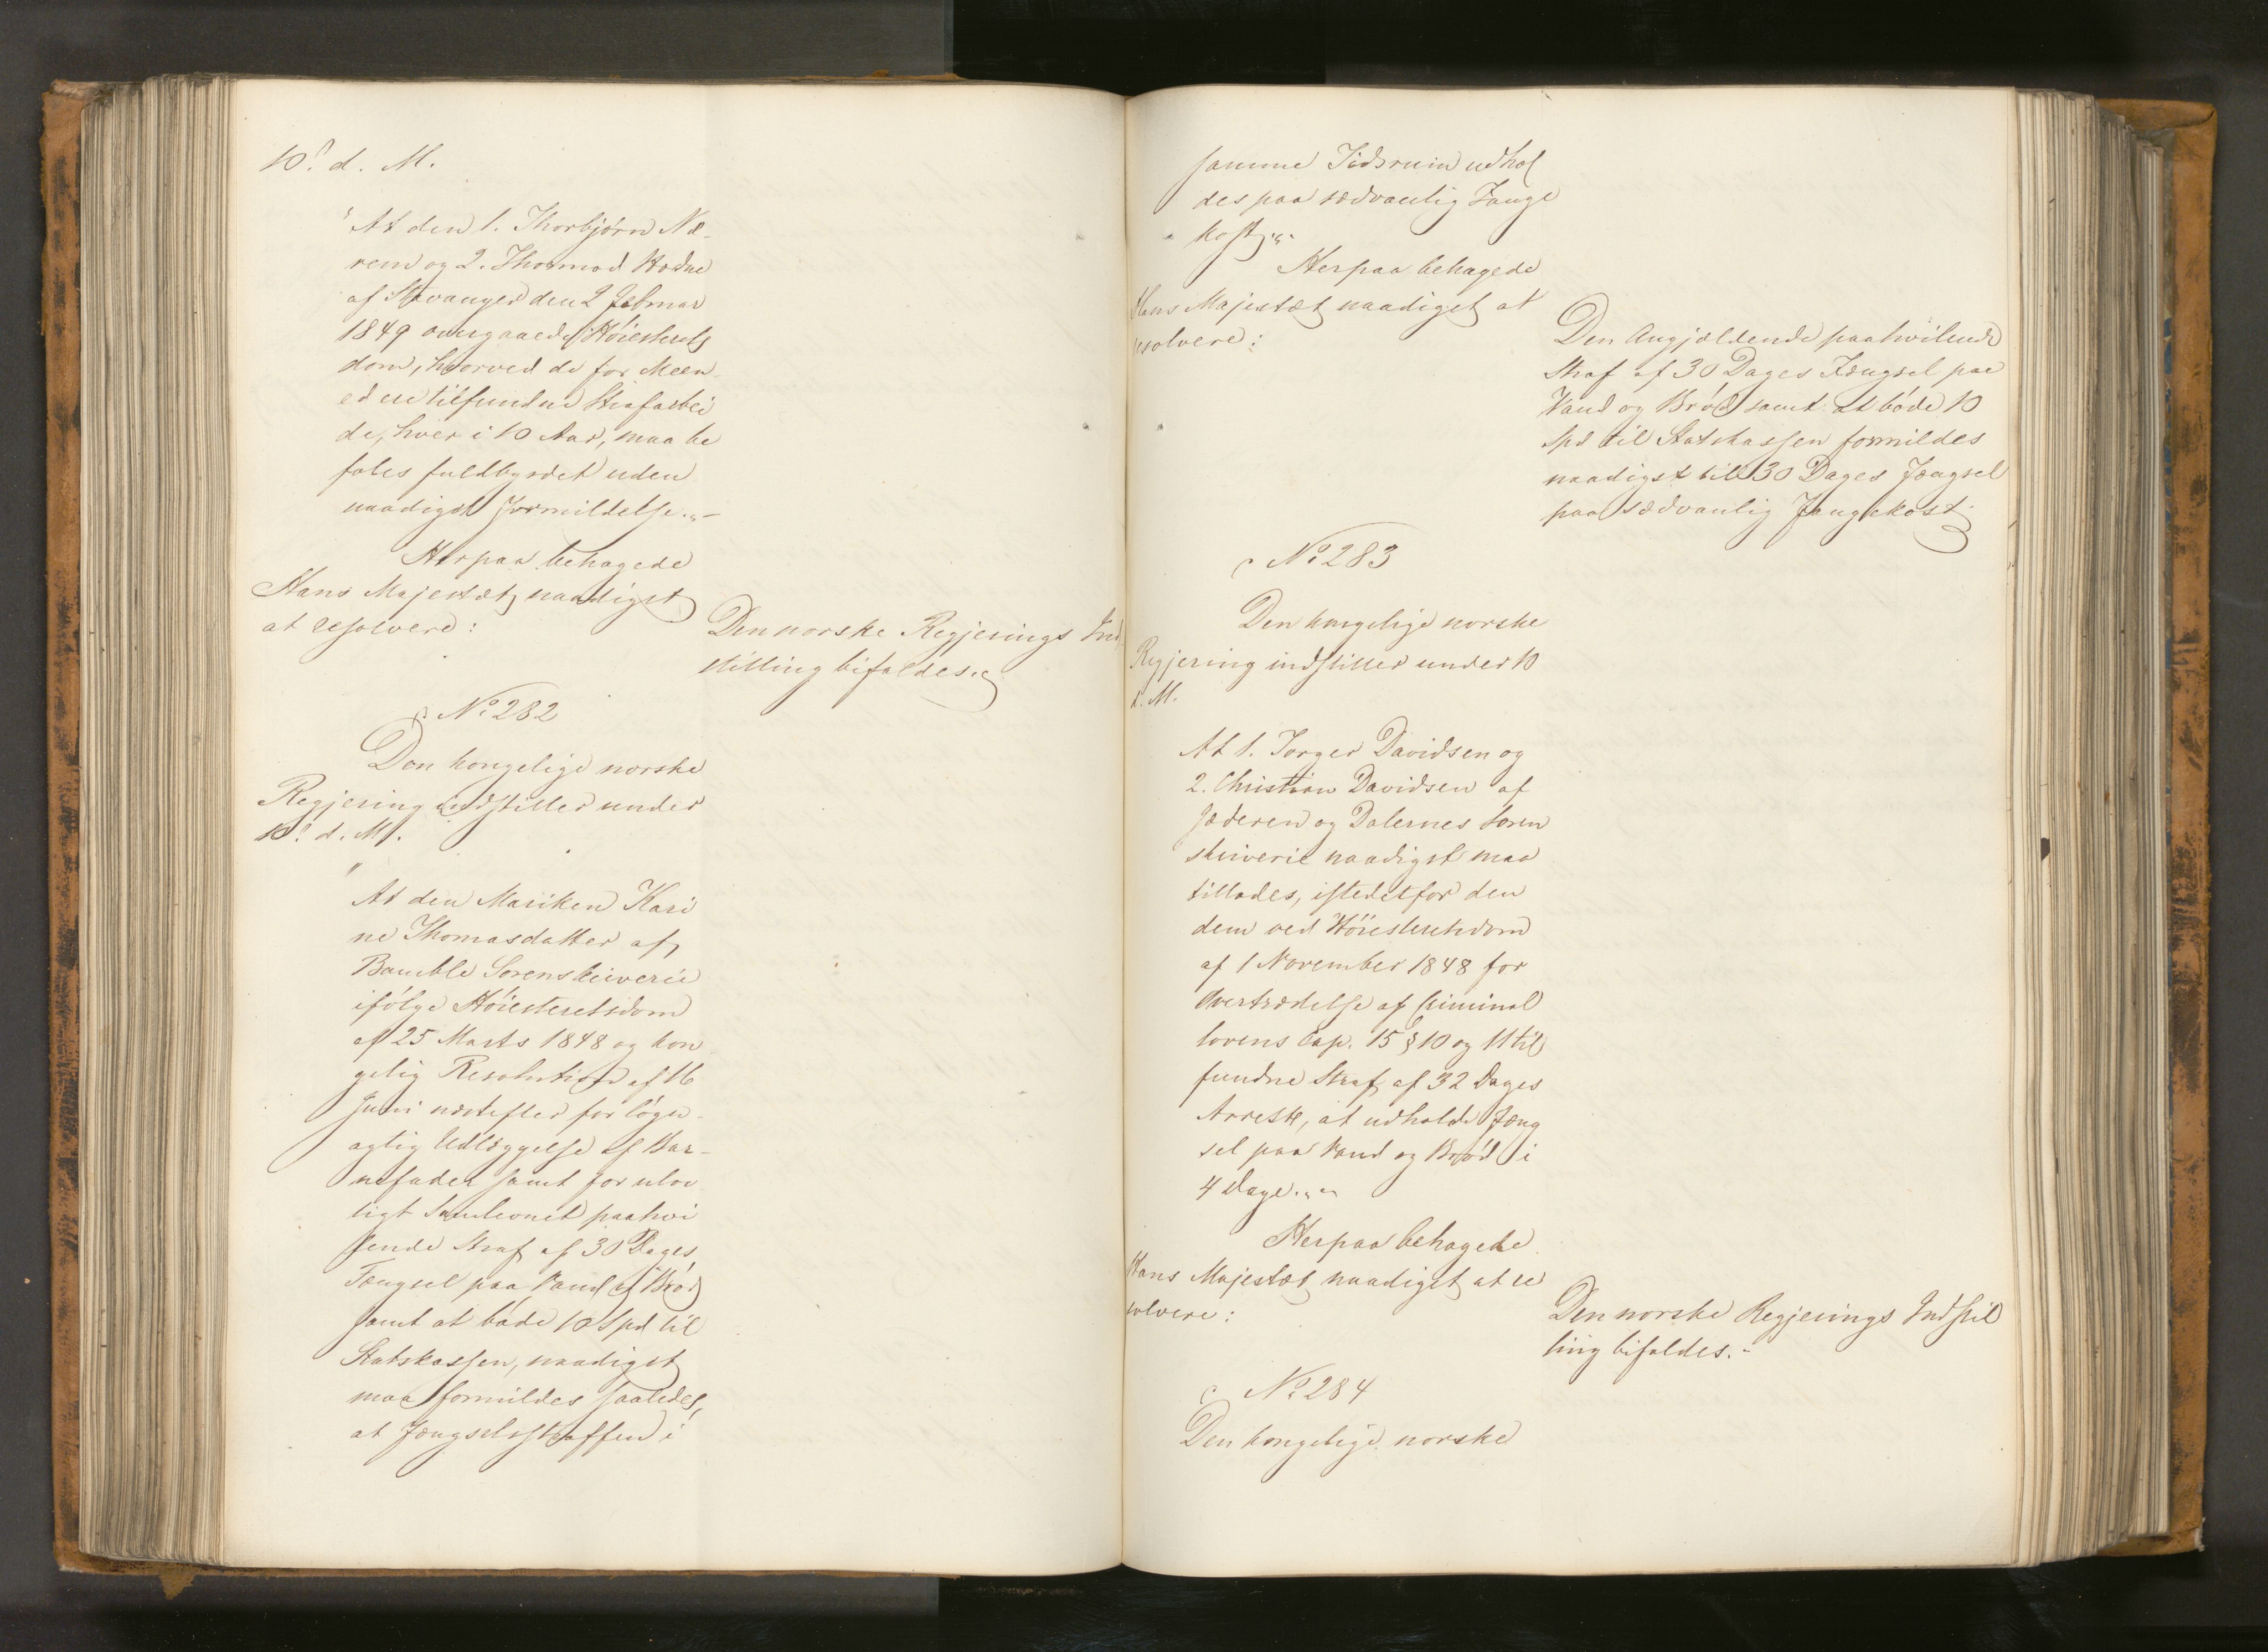 10? d. M.
"At den 1. Thorbjørn Næ-
rem og 2. Thormod Hodne
af Stavanger den 2 Februar
1849 overgaaede Høiesterets
dom, hvorved de for Meen-
ed ere tilfundne Strafarbei
de, hver i 10 Aar, maa be
fales fuldbyrdet uden
naadigst Formildelse."-
Herpaa behagede
Hans Majestæt naadigst
at resolvere:
Den norske Regjerings Ind
stilling bifaldes.
No 282
Den kongelige norske
Regjering indstiller under
10? d. M.
"At den Mariken Kari
ne Thomasdatter af
Bamble Sorenskriverie
ifølge Høiesteretsdom
af 25 Marts 1848 og kon
gelig Resolution af 16
Juni næstefter for løgn-
agtig Udlæggelse af Bar-
nefader samt for ulov
ligt Samleonet paahvi
lende Straf af 30 Dages
Fængsel paa Vand og Brød
samt at bøde 10 Spd til
Statskassen, naadigst
maa formildes saaledes,
at Fængselsstraffen i
samme Tidsrum udhol
des paa sædvanlig Fange
kost"-
Herpaa behagede
Hans Majestæt naadigst at
resolvere:
Den Angjældende paahvilende
Straf af 30 Dages Fængsel paa
Vand og Brød samt at bøde 10
Spd til Statskassen formildes
naadigst til 30 Dages Fængsel
paa sædvanlig Fangekost.
No 283
Den kongelige norske
Regjering indstiller under 10
d. M.
At 1. Torger Davidsen og
2. Christian Davidsen af
Jæderen og Dalernes Soren
skriverie naadigst maa
tillades, istedetfor den
dem ved Høiesteretsdom
af 1 November 1848 for
Overtrædelse af Criminal
lovens Cap. 15 § 10 og 11 til
fundne Straf af 32 Dages
Arrest, at udholde Fæng
sel paa Vand og Brød i
4 Dage."-
Herpaa behagede
Hans Majestæt naadigst at re
solvere:
Den norske Regjerings Indstil
ling bifaldes.-
No 284
Den kongelige norske